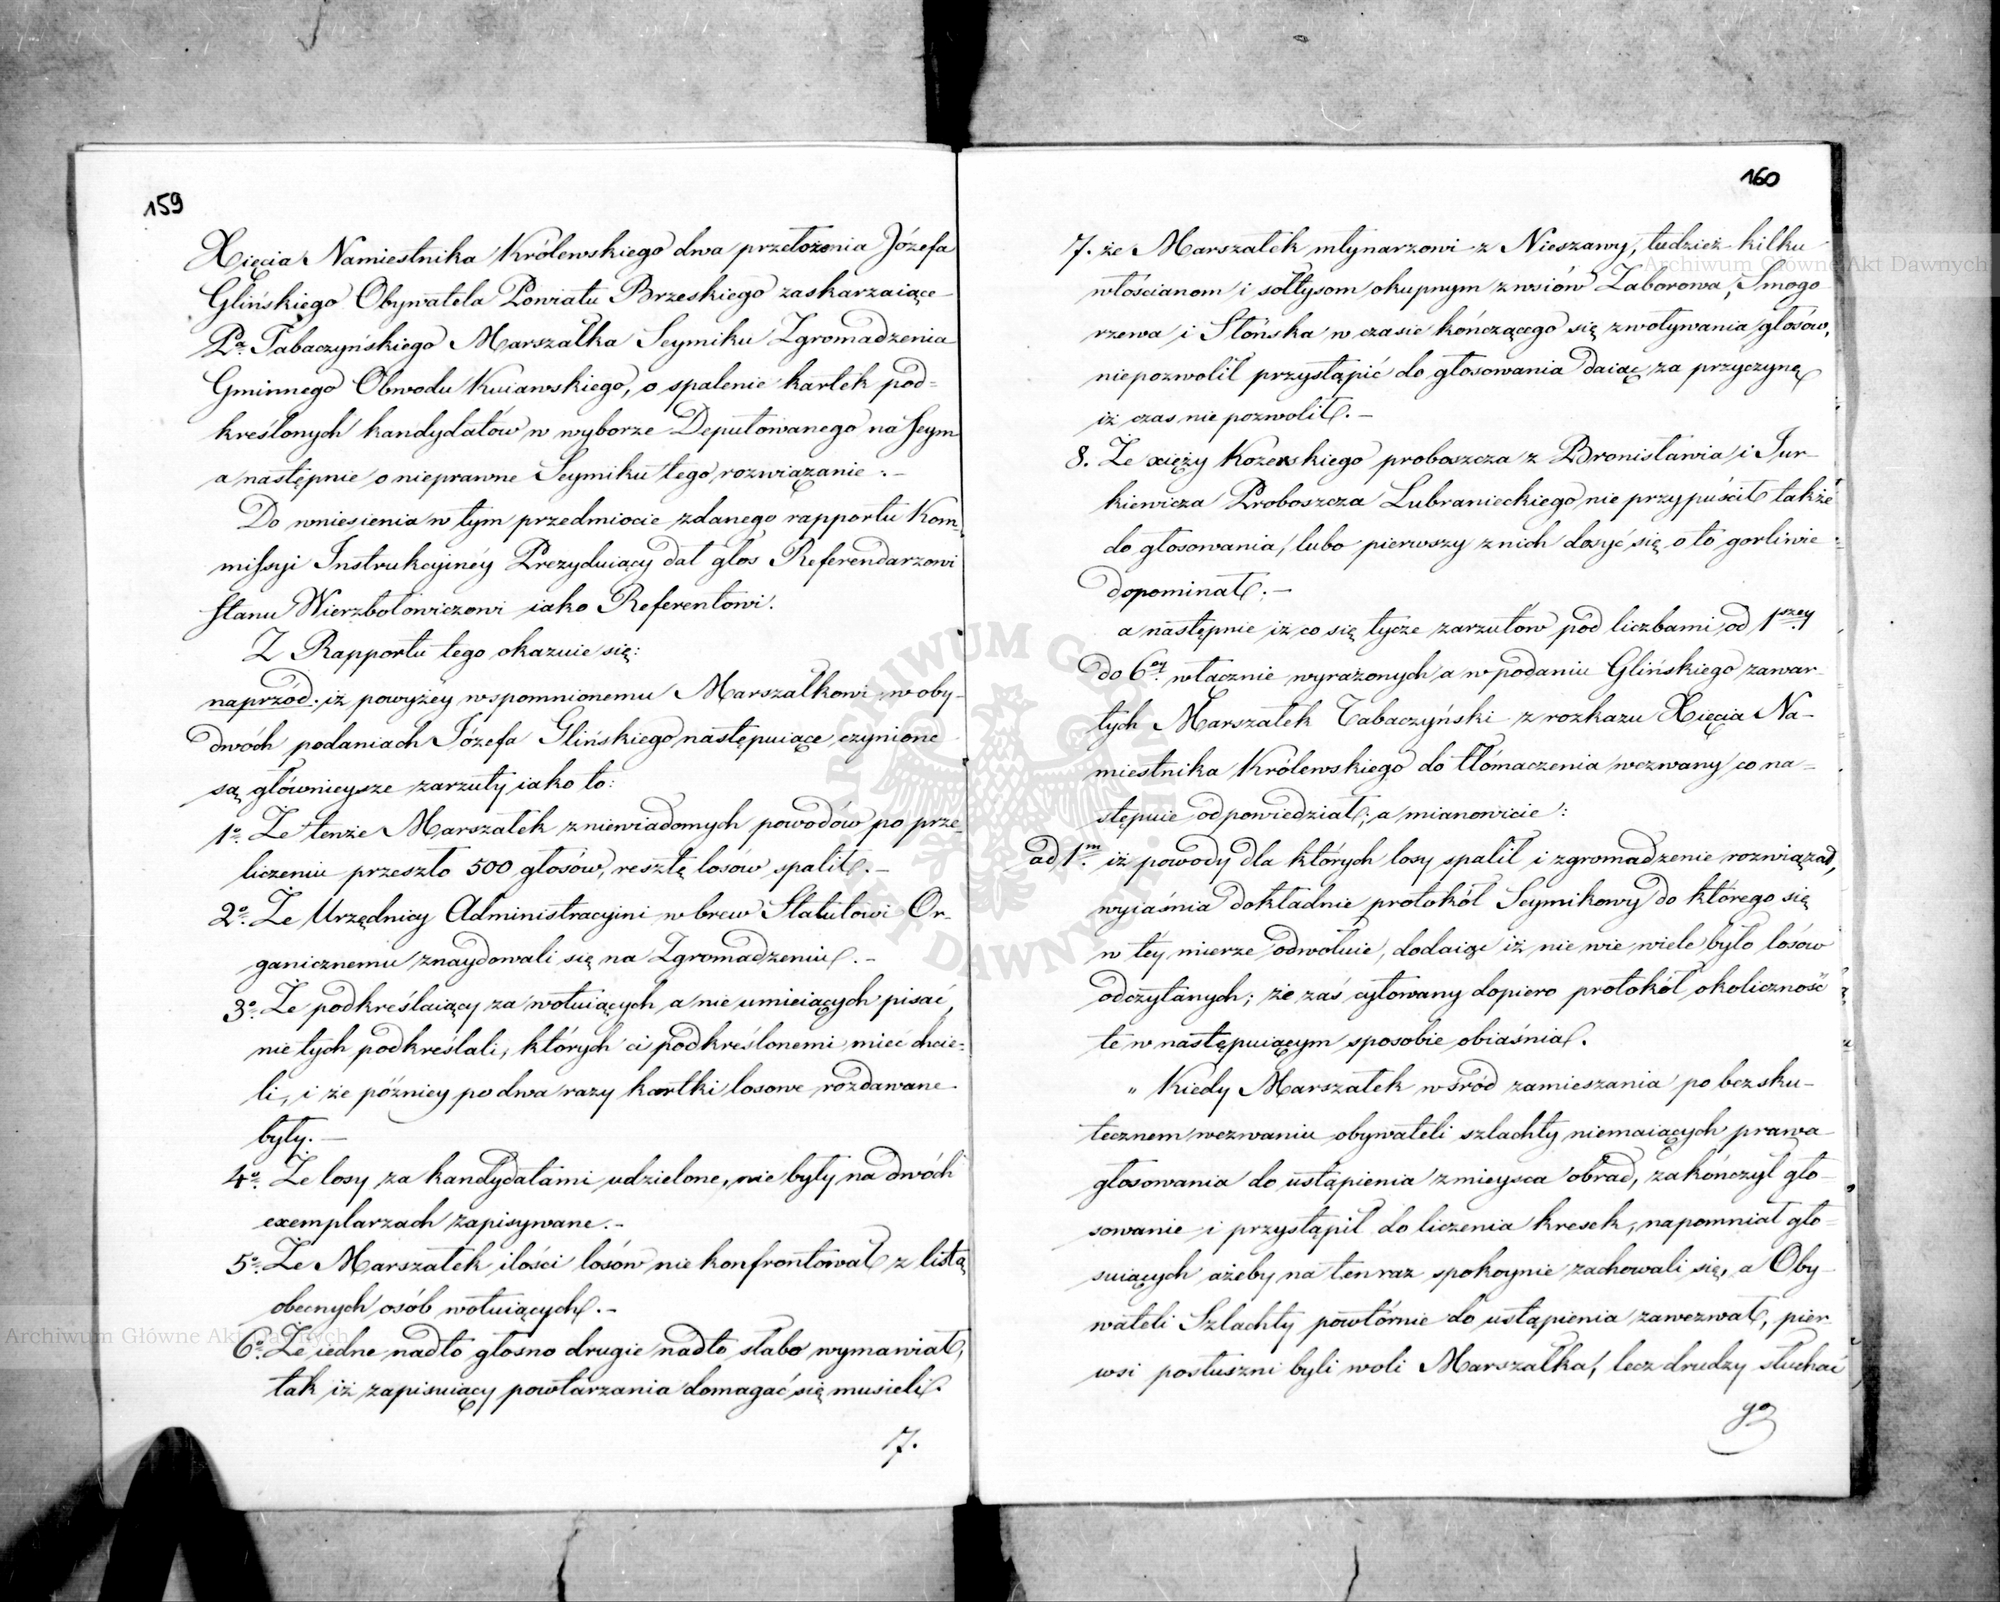 159
Xięcia Namiestnika Królewskiego dwa przełożenia Józefa
Glińskiego Obywatela Powiatu Brzeskiego zaskarzaiące
Pa. Tabaczyńskiego Marszałka Seymiku Zgromadzenia
Gminnego Obwodu Kuiawskiego, o spalenie kartek pod=
kreślonych kandydatów w wyborze Deputowanego na Seym
a następnie o nieprawne Seymiku tego rozwiązanie.-
Do wniesienia w tym przedmiocie zdanego rapportu Kom-
missyi Instrukcyiney Prezyduiący dał głos Referendarzowi
Stanu Wierzbołowiczowi iako Referentowi.
Z Rapportu tego okazuie się:
naprzód. iż powyżey wspomnionemu Marszałkowi w oby-
dwóch podaniach Józefa Glińskiego następuiące czynione
są główniejsze zarzuty iako to:
1o. Że tenże Marszałek z niewiadomych powodów po prze-
liczeniu przeszło 500 głosów, resztę losów spalił.-
2o. Że Urzędnicy Administracyini wbrew Statutowi Or-
ganicznemu znaydowali się na Zgromadzeniu.-
3o. Że podkreślaiący za wotuiących a nie umieiących pisać,
nie tych podkreślali, których ci podkreślonemi mieć chcie-
li, i że później po dwa razy kartki losowe rozdawane
były.-
4o. Że losy za kandydatami udzielone, nie były na dwóch
exemplarzach zapisywane.-
5o. Że Marszałek ilości losów nie konfrontował z listą
obecnych osób wotuiących.-
6o. Że iedne nadto głosno drugie nadto słabo wymawiał,
tak iż zapisuiący powtarzania domagać się musieli.
7.
160
7. że Marszałek młynarzowi z Nieszawy, tudzież kilku
włościanom i sołtysom okupnym z wsiów Zaborowa, Smogo
rzewa i Słońska w czasie kończącego się zwoływania głosów,
niepozwolił przystąpić do głosowania daiąc za przyczynę
iż czas nie pozwolił.-
8. Że xięży Kozerskiego proboszcza z Bronisławia i Jur-
kiewicza Proboszcza Lubranieckiego nie przypuścił także
do głosowania, lubo pierwszy z nich dosyć się o to gorliwie
dopominał.-
a następnie iż co się tycze zarzutów pod liczbami od 1szey
do 6ey. włącznie wyrażonych a w podaniu Glińskiego zawar-
tych Marszałek Tabaczyński z rozkazu Xięcia Na-
miestnika Królewskiego do tłómaczenia wezwany co na-
stępuie odpowiedział; a mianowicie:
ad 1m. iż powody dla których losy spalił i zgromadzenie rozwiązał,
wyiaśnia dokładnie protokół Seymikowy do którego się
w téy mierze odwołuie, dodaiąc iż nie wie wiele było losów
odczytanych; że zaś cytowany dopiero protokół okoliczność
te w następuiącym sposobie obiaśnia.
" Kiedy Marszałek wśród zamieszania po bezsku-
tecznem wezwaniu obywateli szlachty niemaiących prawa
głosowania do ustąpienia z mieysca obrad, zakończył gło-
sowanie i przystąpił do liczenia kresek, napomniał gło-
suiących ażeby na ten raz spokoynie zachowali się, a Oby-
wateli Szlachty powtórnie do ustąpienia zawezwał, pier
wsi posłuszni byli woli Marszałka, lecz drudzy słuchać
go
Archiwum Główne Akt Dawnych
Archiwum Główne Akt Dawnych
ARCHIWUM GŁÓWNE AKT DAWNYCH